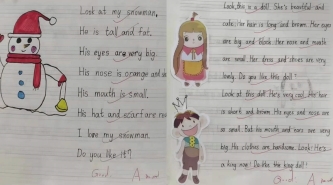 Look at my snowman.
He is tall and fat.
His eyes are very big.
His nose is orange and
His mouth is small.
His hat and scarf are
I love my snowman.
Do you like it?
Good
Look, this is a doll. She's beautiful and
cute. Her hair is long and brown. Her eyes
are big and black. Her nose and mouth
are small. Her dress and shoes are very
lovely. Do you like this doll?
Look at this doll. He's very cool. Her hair
is short and brown. His eyes and nose are
so small. But his mouth and ears are very
big. His clothes are handsome. Look! He's
a king now! Do like the king doll?
Good